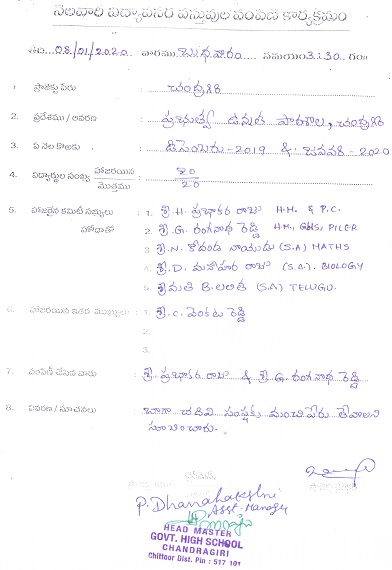 నెలవారి విద్యావసర వస్తువుల పంపిణి కార్యక్రమం
తేది. 08/01/2020 వారము బుధవారం సమయం 3:30 గం॥
1. ప్రాజెక్టు పేరు : చంద్రగిరి
2. ప్రదేశము / ఆవరణ : ప్రభుత్వ ఉన్నత పాఠశాల, చంద్రగిరి
3. ఏ నెల కొఱకు : డిసెంబరు - 2019 & జనవరి - 2020
4. విద్యార్థుల సంఖ్య హాజరయిన / మొత్తము : 20 / 20
5. హాజరైన కమిటీ సభ్యులు : 1. శ్రీ. H. ప్రభాకర రాజు H.M. & P.C.
హోదాతో 2. శ్రీ. G. రంగనాథ రెడ్డి H.M., GHS, PILER
3. శ్రీ. N. కోదండ నాయుడు (S.A) MATHS
4. శ్రీ. D. మనోహర రాజు (S.A). BIOLOGY
5. శ్రీమతి B. లలిత (S.A) TELUGU.
6. హాజరయిన ఇతర ముఖ్యులు : 1. శ్రీ. C. వెంకట రెడ్డి
2.
3.
7. పంపిణీ చేసిన వారు : శ్రీ. ప్రభాకర రాజు & శ్రీ. G. రంగనాథ రెడ్డి.
8. వివరణ / సూచనలు : బాగా చదివి సంస్థకు మంచి పేరు తేవాలని
సూచించారు.
P. Dhanalakshmi
Asst. Manager
HEAD MASTER
GOVT. HIGH SCHOOL
CHANDRAGIRI
Chittoor Dist. Pin : 517 101